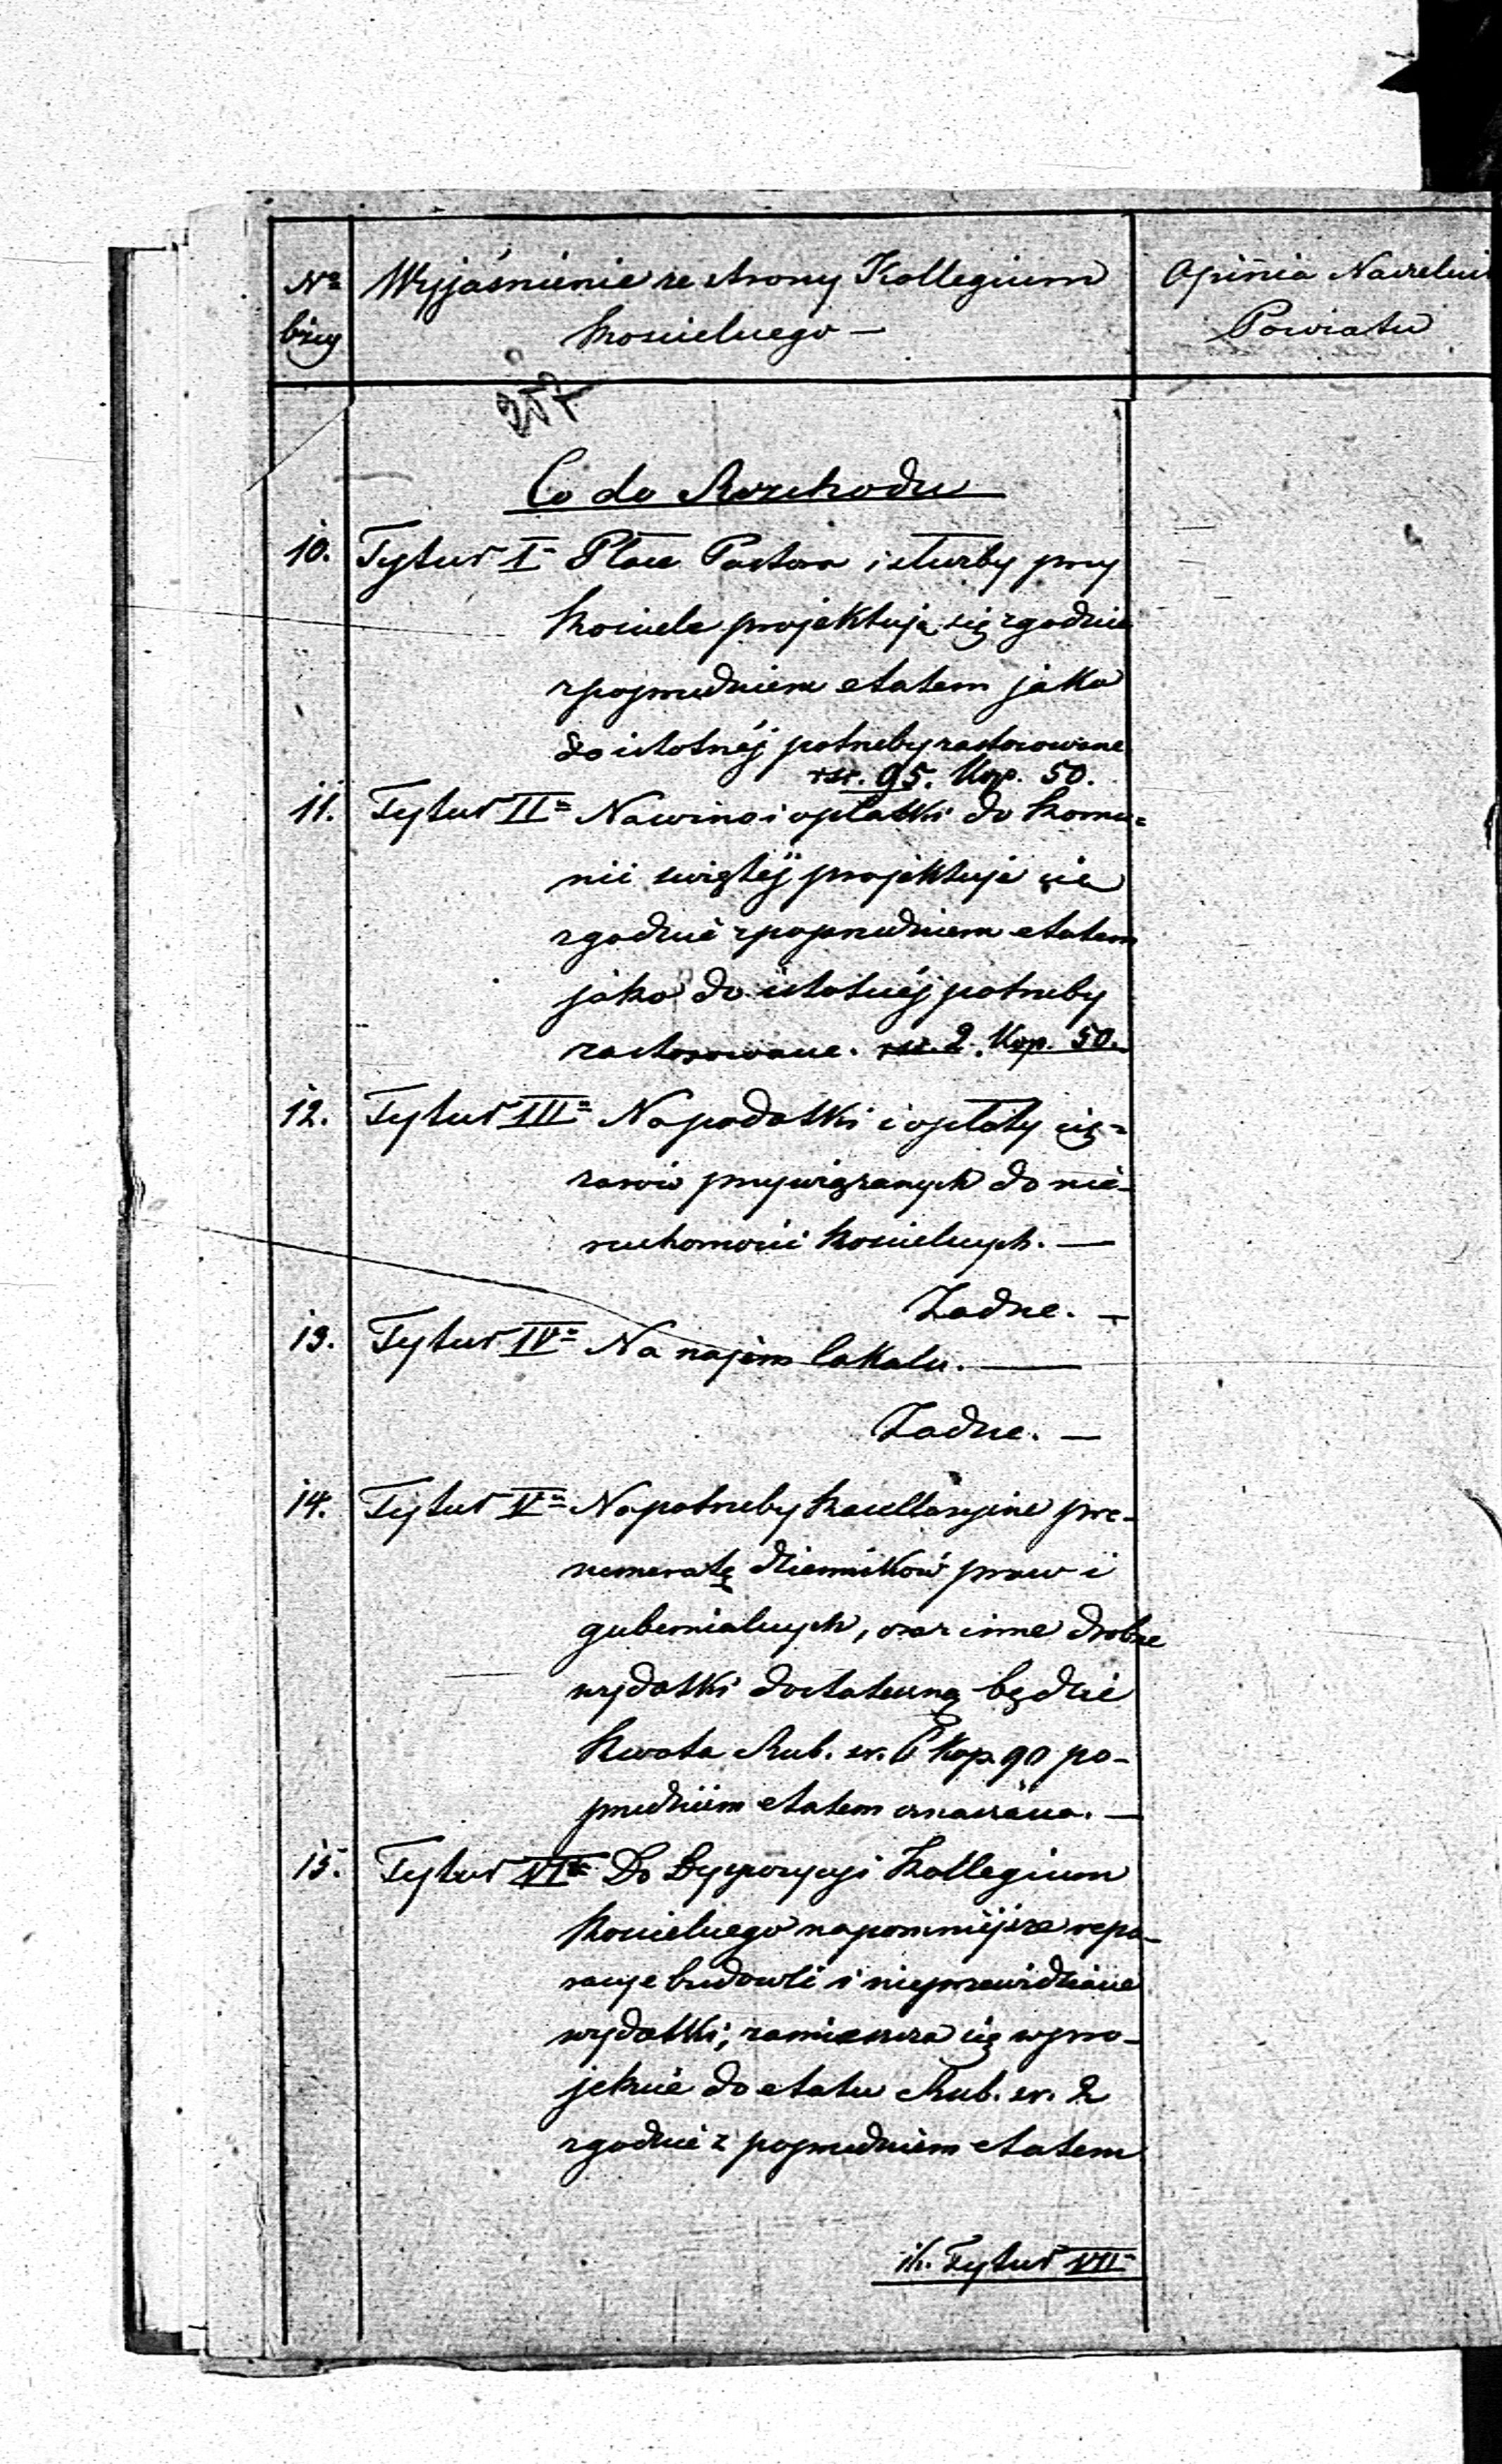 No
bieży
Wyjaśnienie ze strony Kollegium
Kościelnego —
Opinia Naczelni
Powiatu
257
Co do Rozchodu
10. Tytuł I Płace Pastora i służby przy
Kościele projektują się zgodnie
z poprzedniem etatem jako
do istotnéj potrzeby zastosowane
rsr. 95. Kop. 50.
11. Tytuł II Na wino i opłatki do Komu=
nii swiętéj projektuje się
zgodnie z poprzedniem etatem
jako do istotnéj potrzeby
zastosowane. rsr. 2. Kop. 50.
12. Tytuł III Na podatki i opłaty cię=
żarów przywiązanych do nie-
ruchomości Kościelnych. —
Żadne. —
13. Tytuł IV Na najem lokalu. —
Żadne. —
14. Tytuł V Na potrzeby Kancellaryjne pre-
numeratę dzienników praw i
gubernialnych, oraz inne drobne
wydatki dostateczną będzie
Kwota Rub. sr. 6 Kop. 90 po-
przednim etatem oznaczona. —
15. Tytuł VI Do Dyspozycyi Kollegium
Kościelnego na pomniejsze repa-
racye budowli i nieprzewidziane
wydatki, zamieszcza się w pro-
jekcie do etatu Rub. sr. 2
zgodnie z poprzedniem etatem
16. Tytuł VII